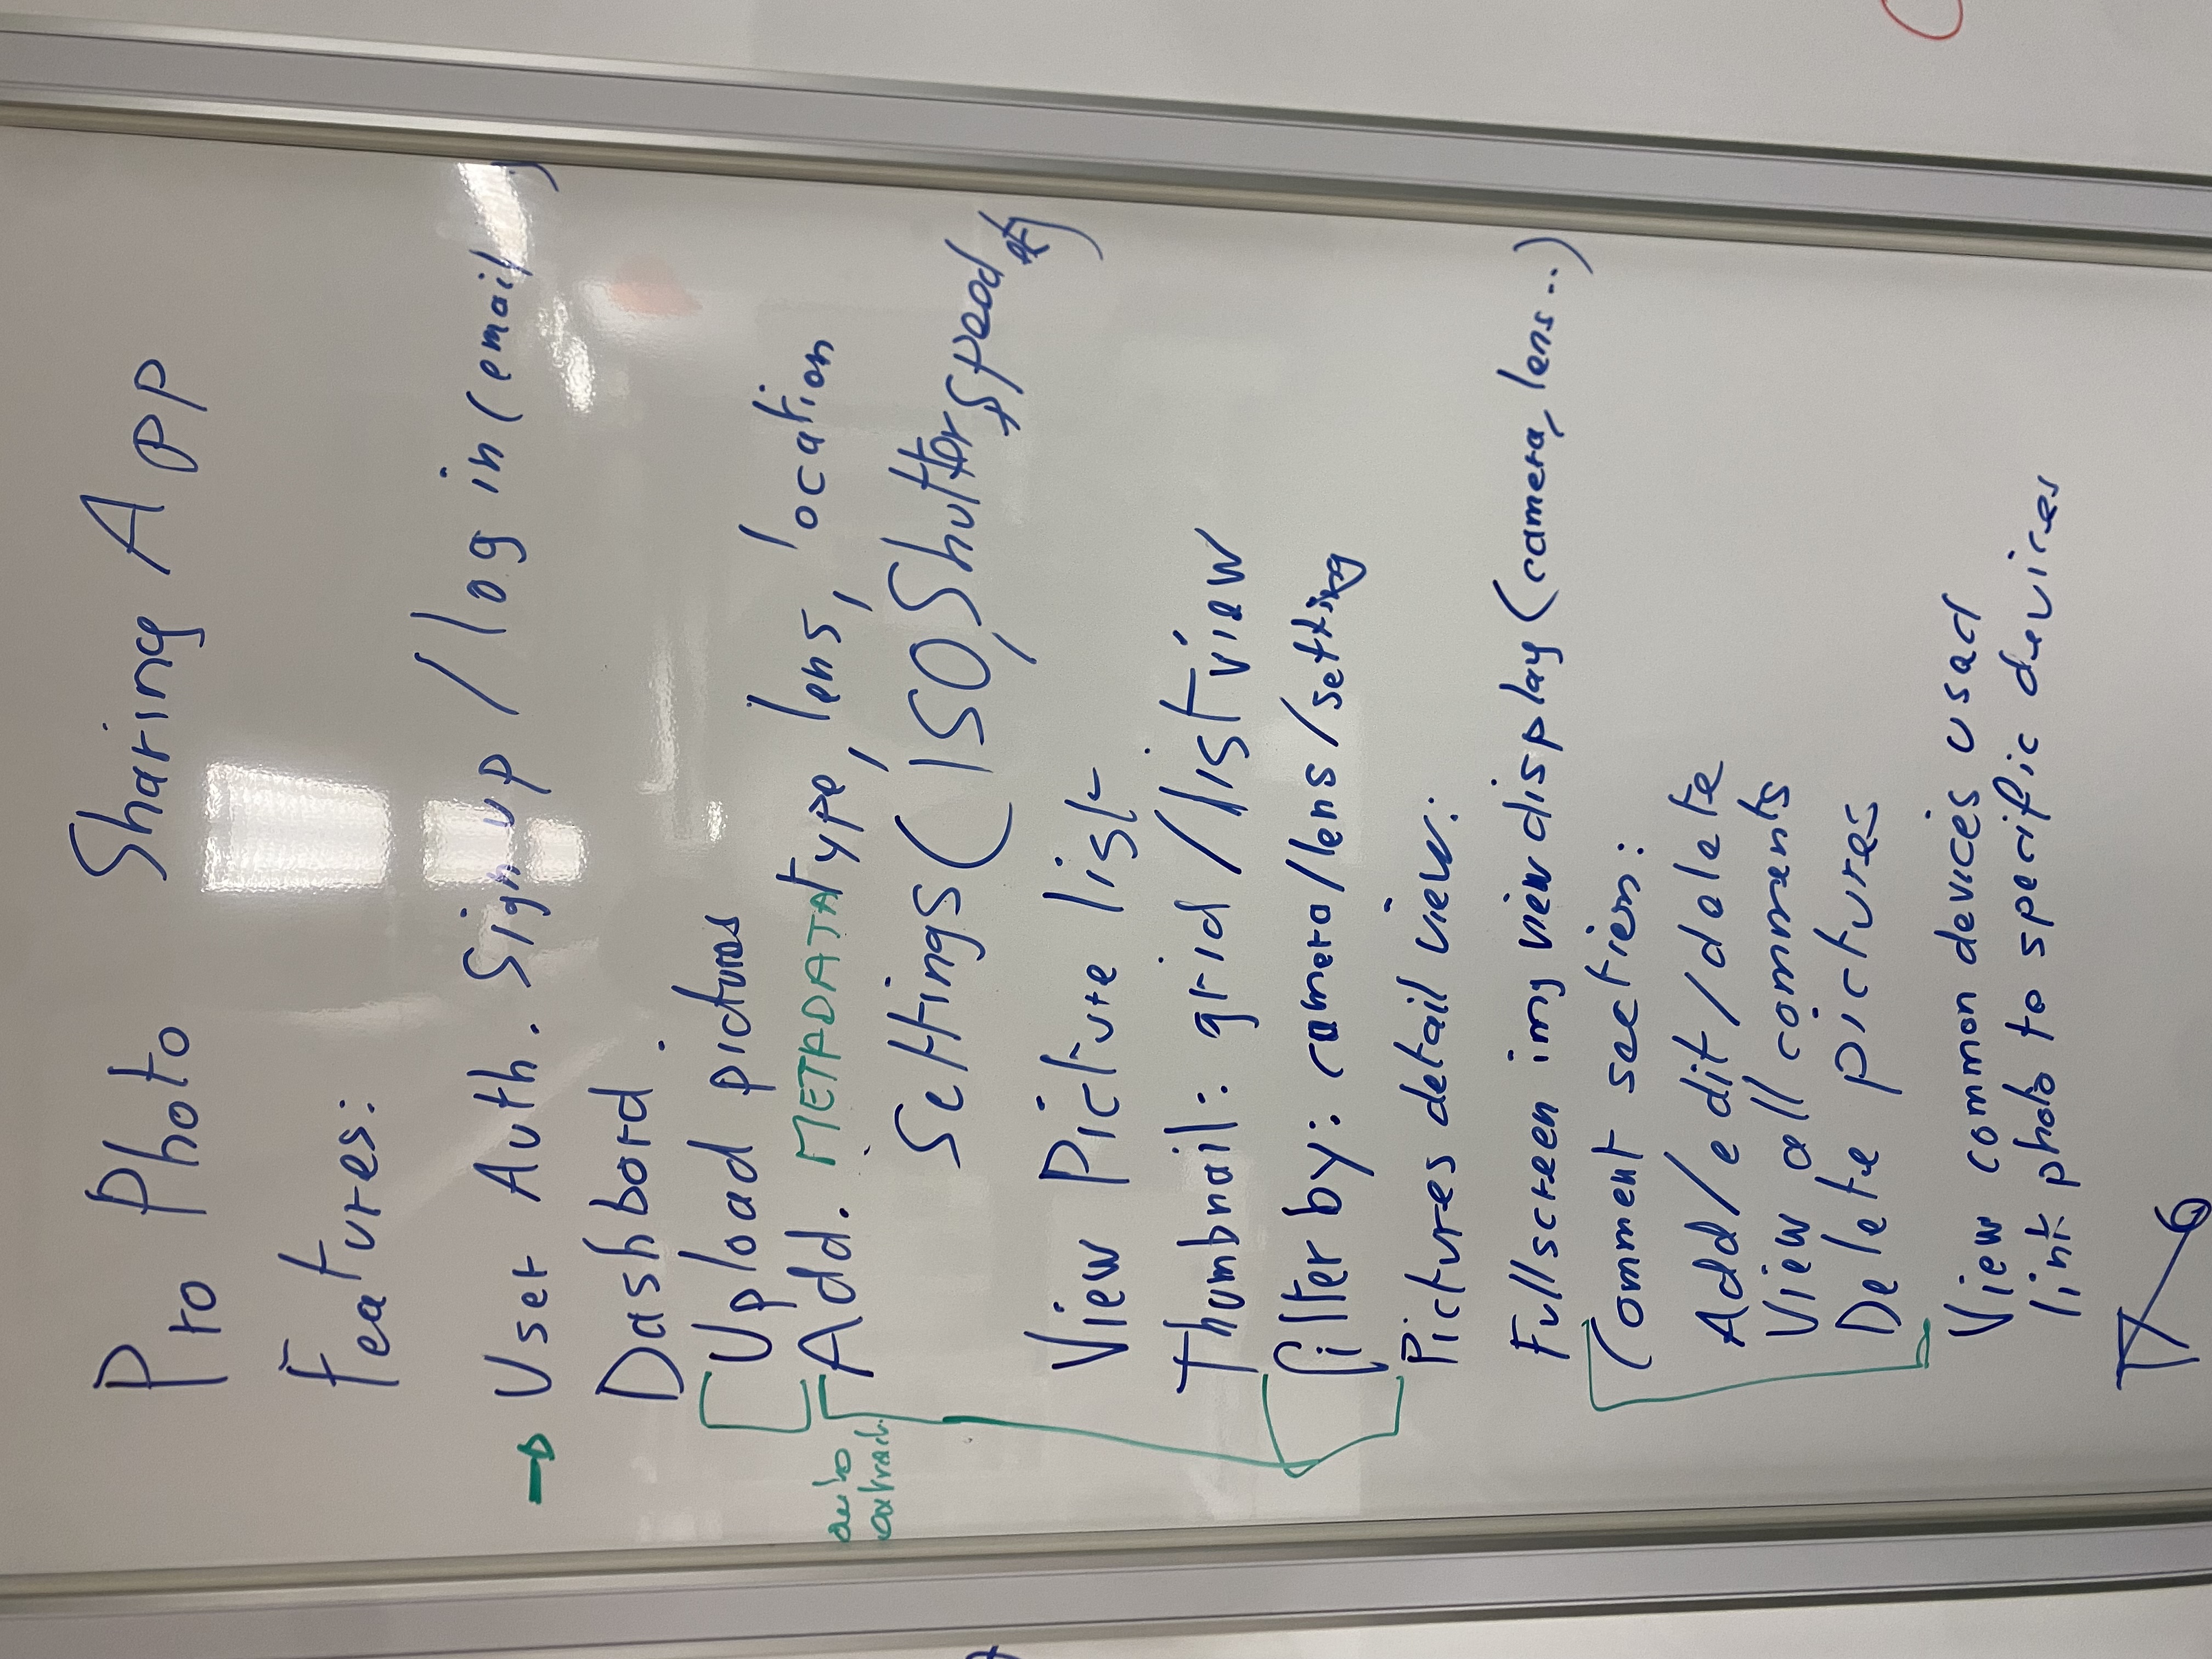 Pro Photo Sharing App
Features:
User Auth. Sign up / log in (email )
Dashbord.
Upload pictures
Add. METADATA type, lens, location
auto
extract
Settings (ISO, Shutter, speed etc)
View Picture list
Thumbnail: grid / list view
filter by: camera/lens/setting
Pictures detail view:
Fullscreen img view display (camera, lens..)
Comment section:
Add/edit/delete
View all comments
Delete pictures
View common devices used
link photo to specific devices